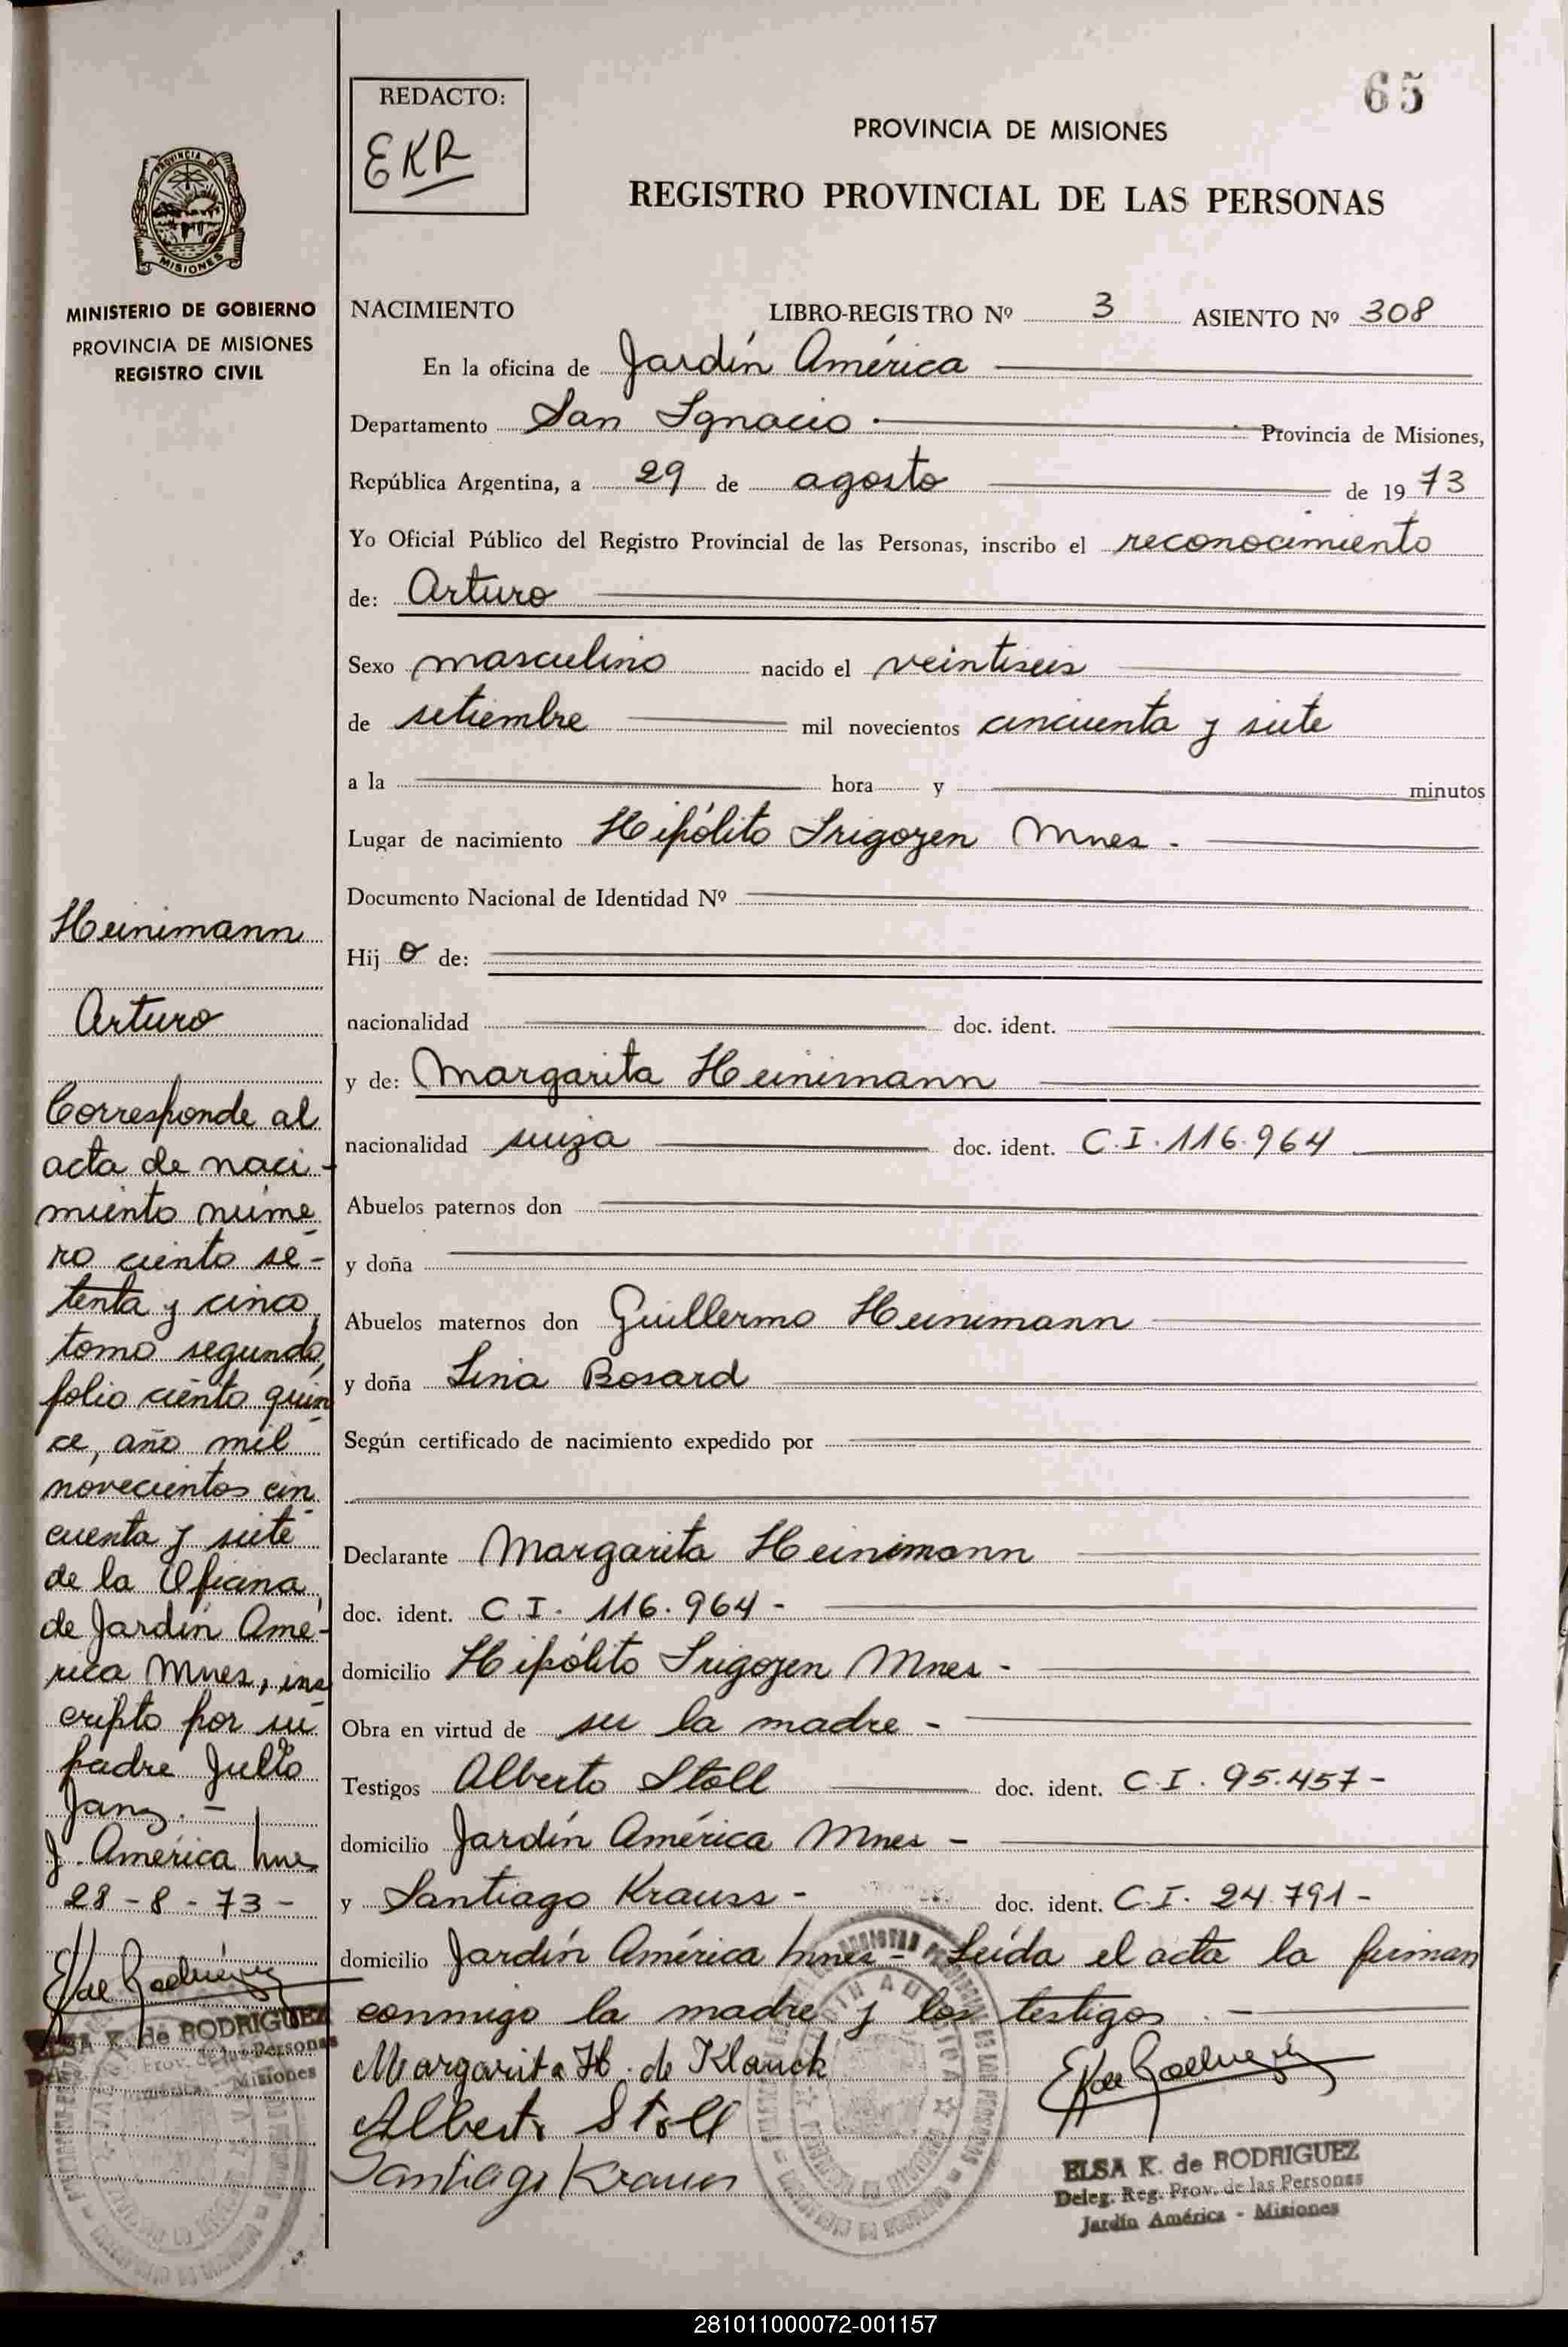 65
REDACTO:
EKR
PROVINCIA DE MISIONES
REGISTRO PROVINCIAL DE LAS PERSONAS
PROVINCIA DE
MISIONES
MINISTERIO DE GOBIERNO
PROVINCIA DE MISIONES
REGISTRO CIVIL
NACIMIENTO LIBRO-REGISTRO Nº 3 ASIENTO Nº 308
En la oficina de Jardín América
Departamento San Ignacio. Provincia de Misiones,
República Argentina, a 29 de agosto de 1973
Yo Oficial Público del Registro Provincial de las Personas, inscribo el reconocimiento
de: Arturo
Sexo masculino nacido el veintiseis
de setiembre mil novecientos cincuenta y siete
a la hora y minutos
Lugar de nacimiento Hipólito Irigoyen Mnes -
Documento Nacional de Identidad Nº
Hijo de:
nacionalidad doc. ident.
y de: Margarita Heinimann
nacionalidad suiza doc. ident. C.I. 116.964
Abuelos paternos don
y doña
Abuelos maternos don Guillermo Heinimann
y doña Lina Bosard
Según certificado de nacimiento expedido por
Declarante Margarita Heinimann
doc. ident. C.I. 116.964 -
domicilio Hipólito Irigoyen Mnes -
Obra en virtud de ser la madre -
Testigos Alberto Stoll doc. ident. C.I. 95.457 -
domicilio Jardín América Mnes -
y Santiago Krauss - doc. ident. C.I. 24.791 -
domicilio Jardín América Mnes - Leída el acta la firman
conmigo la madre y los testigos. -
Margarita H. de Klauck
Alberto Stoll
Santiago Kraus
ELSA K. de RODRIGUEZ
Deleg. Reg. Prov. de las Personas
Jardín América - Misiones
Heinimann
Arturo
Corresponde al
acta de naci-
miento núme-
ro ciento se-
tenta y cinco,
tomo segundo,
folio ciento quin-
ce, año mil
novecientos cin-
cuenta y siete
de la Oficina
de Jardín Amé-
rica Mnes, ins-
cripto por su
padre Julio
Janz. -
J. América Mnes
28 - 8 - 73 -
ELSA K. de RODRIGUEZ
Prov. de las Personas
Misiones
281011000072-001157